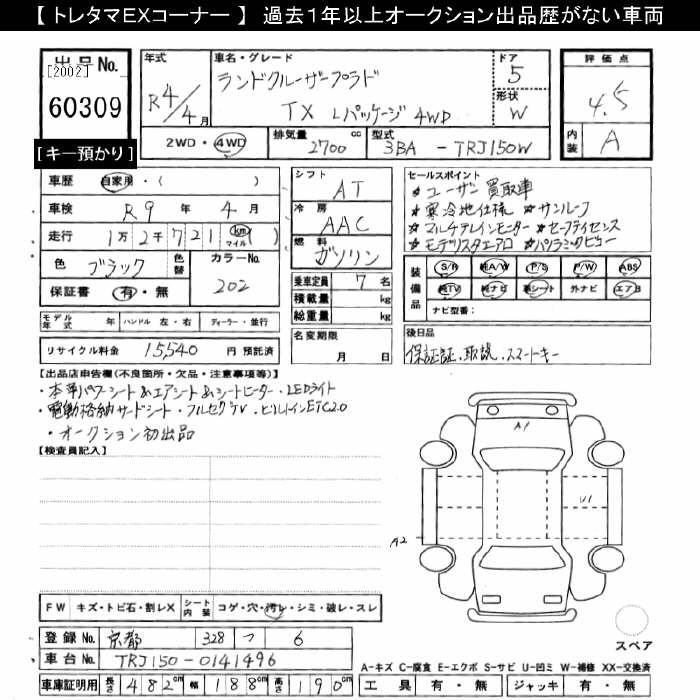 【 トレタマEXコーナー 】 過去1年以上オークション出品歴がない車両
出品No.
[2002]
60309
[キー預かり]
年式
R4/4月
車名・グレード
ランドクルーザープラド
TX Lパッケージ 4WD
ドア
5
形状
W
評価点
4.5
内装
A
2WD・4WD
排気量
2700
cc
型式
3BA - TRJ150W
車歴
自家用・( )
車検
R9年 4月
走行
1万2千721 km マイル ( )
色
ブラック
色替
カラーNo.
202
保証書
有・無
シフト
AT
冷房
AAC
燃料
ガソリン
乗車定員 7名
積載量 kg
総重量 kg
セールスポイント
☆ユーザー買取車
☆寒冷地仕様 ☆サンルーフ
☆マルチアラインモニター ☆セーフティセンス
☆モデリスタエアロ ☆パノラミックビュー
装備品
S/R 純A/W P/S P/W ABS
純TV 純ナビ 革シート 外ナビ エアB
ナビ型番:
モデル年式 年 ハンドル 左・右 ディーラー・並行
名変期限
月 日
後日品
保証証、取説、スマートキー
リサイクル料金 15,540 円 預託済
【出品店申告欄(不良箇所・欠品・注意事項等)】
・本革パワーシート&エアシート&シートヒーター・LEDライト
・電動格納サードシート・フルセグTV・ビルトインETC2.0
・オークション初出品
【検査員記入】
A1
U1
A2
FW キズ・トビ石・割レX シート内装 コゲ・穴・汚レ・シミ・破レ・スレ
スペア
登録No. 京都 328 つ 6
車台No. TRJ150-0141496
A-キズ C-腐食 E-エクボ S-サビ U-凹ミ W-補修 XX-交換済
車庫証明用 長さ 482cm 幅 188cm 高さ 190cm
工具 有・無 ジャッキ 有・無